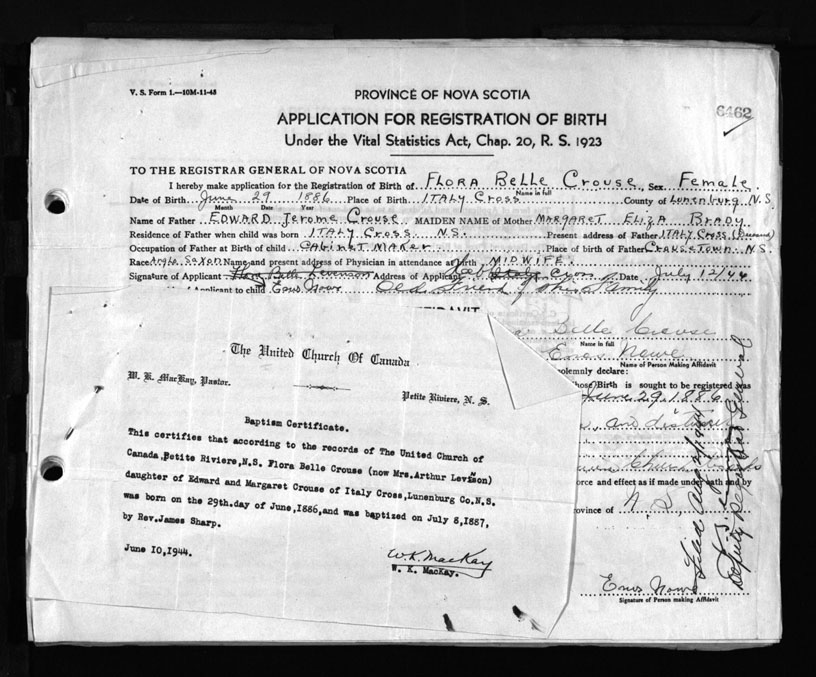 V. S. Form 1.—10M-11-43
PROVINCE OF NOVA SCOTIA
6462
APPLICATION FOR REGISTRATION OF BIRTH
Under the Vital Statistics Act, Chap. 20, R. S. 1923
TO THE REGISTRAR GENERAL OF NOVA SCOTIA
I hereby make application for the Registration of Birth of FLORA Belle Crouse, Sex Female
Name in full
Date of Birth June 29 1886 Place of Birth ITALY Cross County of Lunenburg N.S.
Month Date Year
Name of Father EDWARD Jerome Crouse MAIDEN NAME of Mother MARGARET ELIZA BRADY
Residence of Father when child was born ITALY Cross N.S. Present address of Father ITALY Cross (Deceased)
Occupation of Father at Birth of child CABINET MAKER Place of birth of Father CROUSETOWN N.S.
Race Anglo Saxon Name and present address of Physician in attendance at birth MIDWIFE
Signature of Applicant Address of Applicant Date July 12/44
Applicant to child Enos Nowe Old friend of the Family
Belle Crouse
Name in full
Enos Nowe
Name of Person Making Affidavit
solemnly declare:
whose Birth is sought to be registered was
June 29, 1886
force and effect as if made under oath and by
Province of N. S.
Deputy Registrar General
Enos Nowe
Signature of Person making Affidavit
The United Church Of Canada
W. K. MacKay, Pastor.
Petite Riviere, N. S.
Baptism Certificate.
This certifies that according to the records of The United Church of
Canada,Petite Riviere,N.S. Flora Belle Crouse (now Mrs.Arthur Levison)
daughter of Edward and Margaret Crouse of Italy Cross,Lunenburg Co.N.S.
was born on the 29th.day of June,1886,and was baptized on July 8,1887,
by Rev.James Sharp.
June 10,1944.
W.K. MacKay
W. K. MacKay.